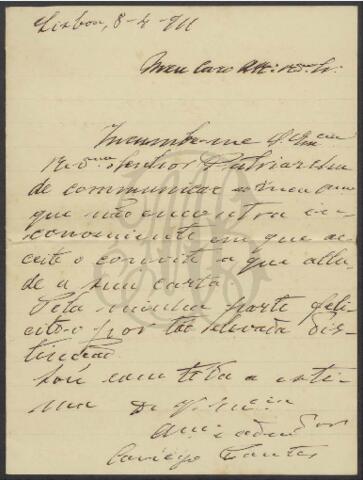 Lisboa, 8-4-911
Meu caro
Incumbe-me
Senhor Patriarcha
de communicar
que não encontra in-
conveniente em que ac-
ceite o convite a que allu-
de a sua carta
Pela minha parte feli-
cito-o por tão elevada dis-
tincção
Sou com toda a esti-
ma de